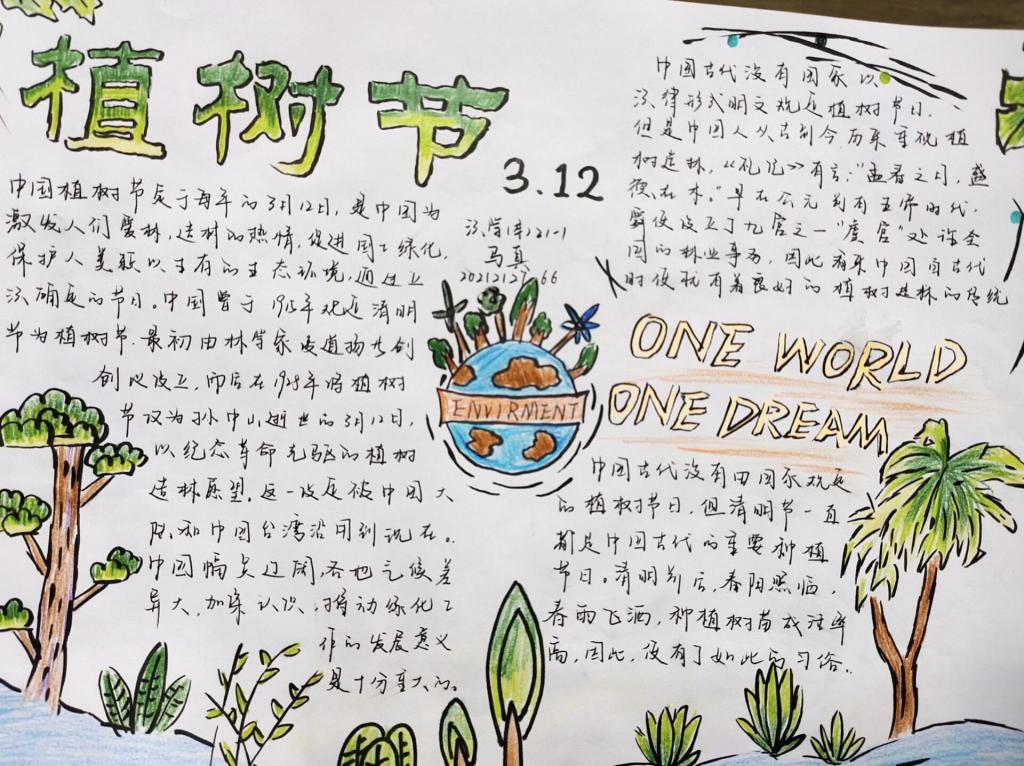 植树节
3.12
中国植树节定于每年的3月12日,是中国为
激发人们爱林,造林的热情,促进国土绿化,
保护人类赖以生存的生态环境,通过立
法确定的节日。中国曾于1915年规定清明
节为植树节.最初由林学家凌道扬共创
创以设立,而后在1928年将植树
节改为孙中山逝世的3月12日,
以纪念革命先驱的植树
造林愿望。这一设定被中国大
陆和中国台湾沿用到现在。
中国幅员辽阔,各地气候差
异大,加深认识,推动绿化工
作的发展意义
是十分重大的。
马真
ENVIRMENT
中国古代没有国家以
法律形式明文规定植树节日.
但是中国人从古到今历来重视植
树造林,《礼记》有言:"孟春之月,盛
德在木."早在公元前有五帝时代.
舜便设立了九官之一"虞官"处许全
国的林业事务,因此看来中国自古代
时便就有着良好的植树造林的传统
ONE WORLD
ONE DREAM
中国古代没有由国家规定
的植树节日,但清明节一直
都是中国古代的重要种植
节日。清明前后,春阳照临,
春雨飞洒,种植树苗成活率
高,因此,便有了如此的习俗.